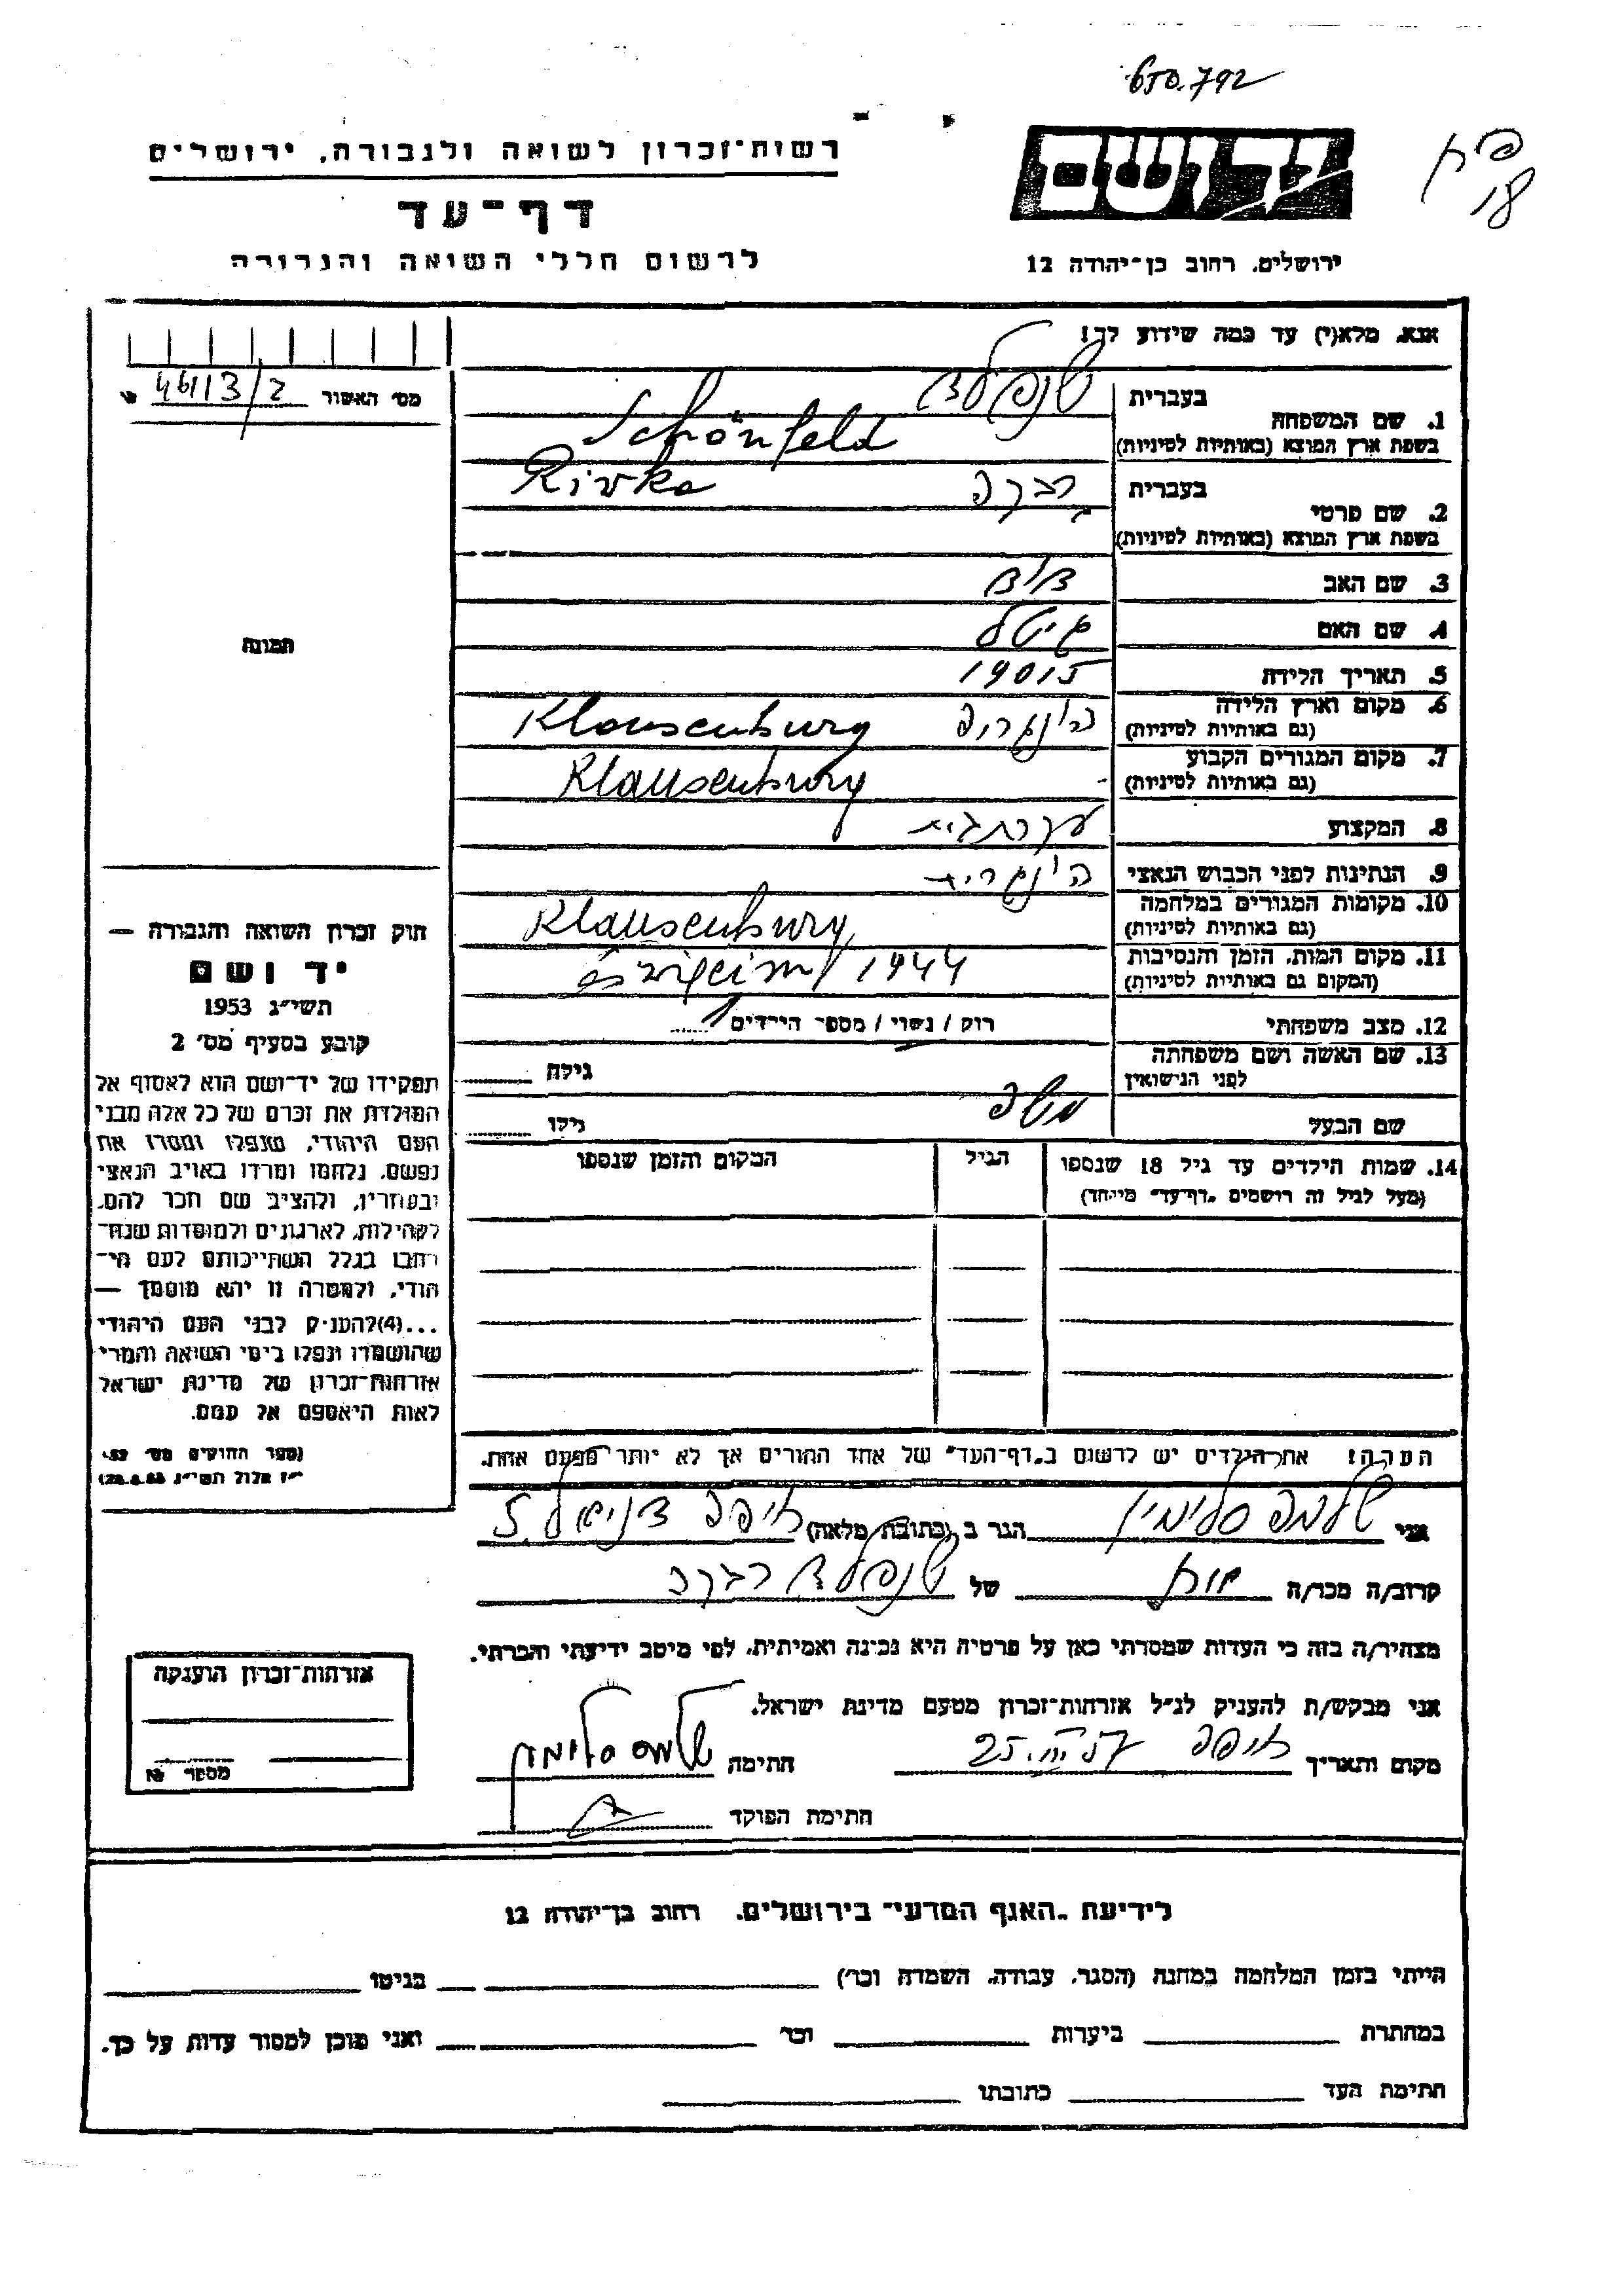 650.792
רשות־זכרון לשואה ולגבורה, ירושלים
יד ושם
דף־עד
18
לרשום חללי השואה והגבורה
ירושלים, רחוב בן־יהודה 12
אנא, מלא(י) עד כמה שידוע לך!
מס׳ האשור
בעברית שנפלד
1. שם המשפחה
בשפת ארץ המוצא (באותיות לטיניות) Schönfeld
בעברית רבקה Rivka
2. שם פרטי
בשפת ארץ המוצא (באותיות לטיניות)
3. שם האב דוד
4. שם האם גיטל
5. תאריך הלידה
6. מקום וארץ הלידה
(גם באותיות לטיניות) הונגריה Klausenburg
7. מקום המגורים הקבוע
(גם באותיות לטיניות) Klausenburg
8. המקצוע עקרת בית
9. הנתינות לפני הכבוש הנאצי הונגרית
10. מקומות המגורים במלחמה
(גם באותיות לטיניות) Klausenburg
11. מקום המות, הזמן והנסיבות
(המקום גם באותיות לטיניות) 1944
12. מצב משפחתי רוק / נשוי / מספר הילדים 1
13. שם האשה ושם משפחתה
לפני הנישואין גילה
שם הבעל משה גילו
14. שמות הילדים עד גיל 18 שנספו הגיל המקום והזמן שנספו
(מעל לגיל זה רושמים "דף־עד" מיוחד)
הערה! את הילדים יש לרשום ב"דף־העד" של אחד ההורים אך לא יותר מפעם אחת.
תמונה
חוק זכרון השואה והגבורה —
יד ושם
תשי״ג 1953
קובע בסעיף מס׳ 2
תפקידו של יד־ושם הוא לאסוף אל
המולדת את זכרם של כל אלה מבני
העם היהודי, שנפלו ומסרו את
נפשם, נלחמו ומרדו באויב הנאצי
ובעוזריו, ולהציב שם וזכר להם,
לקהילות, לארגונים ולמוסדות שנח־
רבו בגלל השתייכותם לעם הי־
הודי, ולמטרה זו יהא מוסמך —
...(4)להעניק לבני העם היהודי
שהושמדו ונפלו בימי השואה והמרי
אזרחות־זכרון של מדינת ישראל
לאות היאספם אל עמם.
(ספר החוקים מס׳
י״ז אלול תשי״ג
אני שלמה הגר ב (כתובת מלאה) חיפה דניאל 5
קרוב/ה מכר/ה של שנפלד רבקה
מצהיר/ה בזה כי העדות שמסרתי כאן על פרטיה היא נכונה ואמיתית, לפי מיטב ידיעתי והכרתי.
אני מבקש/ת להעניק לנ״ל אזרחות־זכרון מטעם מדינת ישראל.
מקום ותאריך חיפה 25. חתימה שלמה
חתימת הפוקד
אזרחות־זכרון הוענקה
מספר №
לידיעת "האגף המדעי" בירושלים, רחוב בן־יהודה 12
הייתי בזמן המלחמה במחנה (הסגר, עבודה, השמדה וכו׳) בגיטו
במחתרת ביערות וכו׳ ואני מוכן למסור עדות על כך.
חתימת העד כתובתו